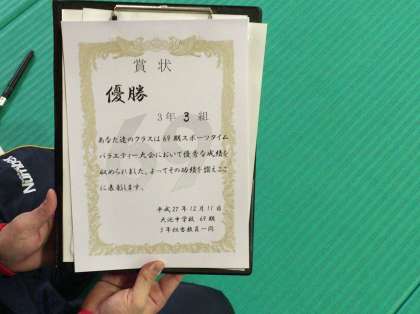 賞状
優勝
3年 3 組
あなた達のクラスは69期スポーツタイム
バラエティー大会において優秀な成績を
収められました。よってその功績を讃えここ
に表彰します。
平成27年12月11日
大池中学校 69期
3年担当教員一同
Number